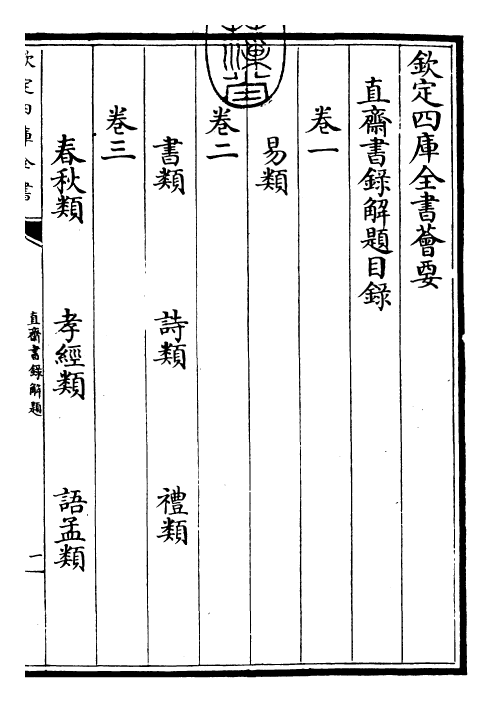 欽定四庫全書薈要
直齋書錄解題目錄
卷一
易類
卷二
書類 詩類 禮類
卷三
春秋類 孝經類 語孟類
欽定四庫全書
直齋書錄解題
一